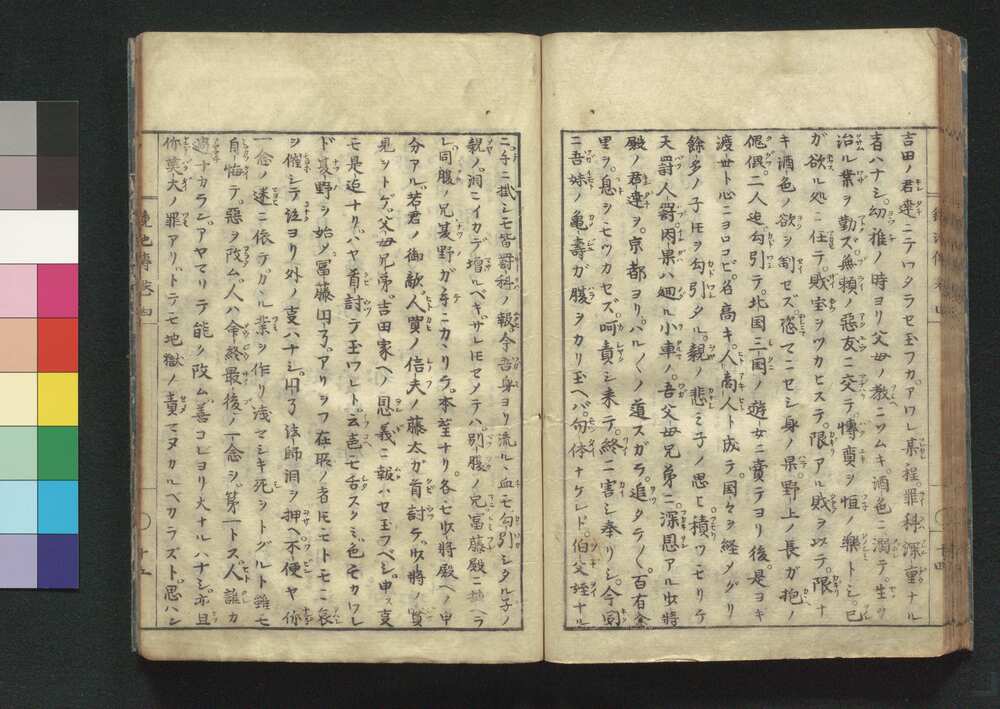 吉田ノ君達ニテワタラセ玉フカ。アワレ某程。罪科深重ナル
者ハナシ。幼稚ノ時ヨリ父母ノ教ニソムキ。酒色ニ溺テ。生ヲ
治ル業ヲ勤ズ。無頼ノ悪友ニ交テ。博奕ヲ恒ノ楽トシ。已
ガ欲ル処ニ任テ。財宝ヲツカヒステ。限アル財ヲ以テ。限ナ
キ酒色ノ欲ヲ制セズ。恣マニセシ身ノ果。野上ノ長ガ抱ノ
傀儡。二人迄勾引テ。北国三国ノ遊女ニ賣テヨリ後。是ヨキ
渡世ト心ニヨロコビ。名高キ。人商人ト成テ国々ヲ経メグリ
餘多ノ子ドモヲ勾引タル。親ノ悲ミ子ノ思ヒ。積ツモリケ
天罰人罰。因果ハ廻ル小車ノ。吾父母兄弟ニ。深恩アル少将
殿ノ君達ヲ。京都ヨリ。ハル〳〵ノ道スガラ。追タテ〳〵。百有余
里ヲ。息ヲモツカセズ。呵責シ来テ。終ニ害シ奉リシ。今
ニ吾妹ノ亀壽ガ腹ヲカリ玉ヘバ。句体ナケレド。伯父姪ナル
ニ手ニ掛シモ皆罰科ノ報。今吾身ヨリ流ルヽ血モ勾引シタル子ノ
親ノ。洞ニイカデ増ルベキ。ザレドモセメノテハ。別腹ノ兄冨藤殿ニ
レ。同腹ノ兄夏野ガ手ニカヽリテ。本望ナリ。各七少将殿ヘノ申
分アル。若君ノ御敵。人買ノ信夫ノ藤太ガ首討ケ。少将ノ
見ヲトゲ。父母兄弟。吉田家ヘノ恩義ニ報ハセ玉フベシ。申ス
モ是迄ナリ。ハヤ首討テ玉ワレト。云声モ舌スクミ。色モカワレ
ド。夏野ヲ始メ冨藤円了。アリツフ在所ノ者ドモモトモニ哀
ヲ催シテ泣ヨリ外ノ事ハナシ。円了法師洞ヲ押。不便ヤ你
一念ノ迷ニ依テ。カヽル業ヲ作リ浅マシキ死ヲトグルト雖モ
自悔テ。悪ヲ改ム。人ハ命終最後ノ一念ヲ。第一トス人誰カ
過チナカラン。アヤマリテ能ク改ム。善コレヨリ大ナルハナシ。亦且
你莫大ノ罪アリ。トテモ地獄ノ責マヌカルベカラズト。思ハン
十四
十五